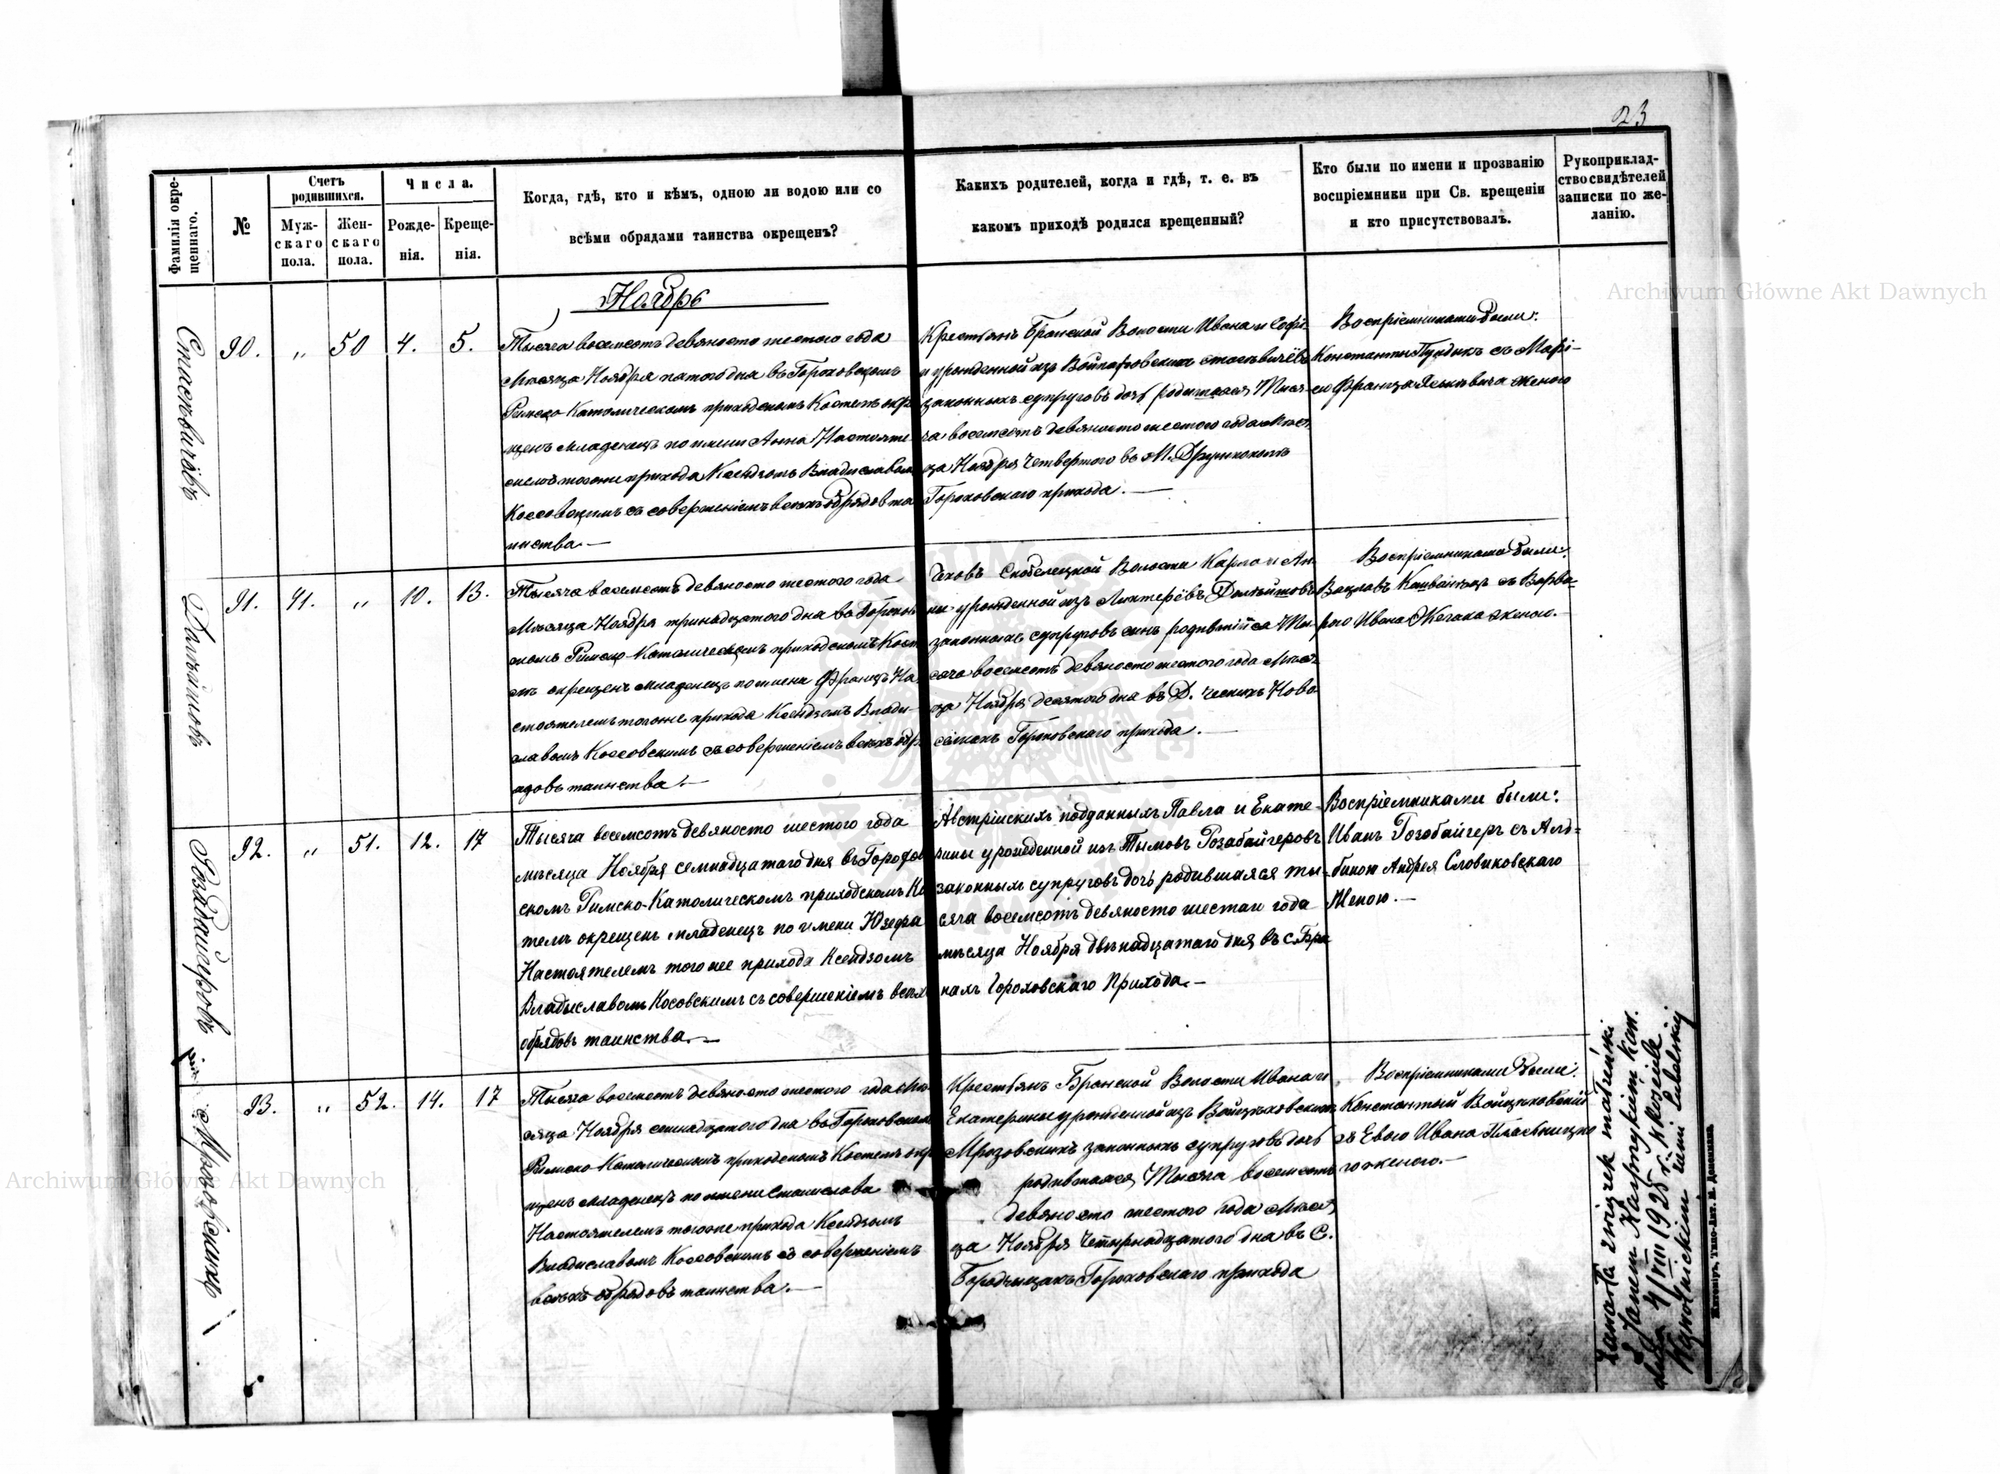 23
Фамилія окре-
щеннаго.
№
Счетъ
родившихся.
Муж-
скаго
пола.
Жен-
скаго
пола.
Числа.
Рожде-
нія.
Креще-
нія.
Когда, гдѣ, кто и кѣмъ, одною ли водою или со
всѣми обрядами таинства окрещенъ?
Какихъ родителей, когда и гдѣ, т. е. въ
какомъ приходѣ родился крещенный?
Кто были по имени и прозванію
воспріемники при Св. крещеніи
и кто присутствовалъ.
Рукоприклад-
ство свидѣтелей
записки по же-
ланію.
Ноябрь
Стасевичёвъ
90. „ 50 4. 5.
Тысяча восемсотъ девяносто шестого года
Мѣсяца Ноября пятого дня въ Гороховскомъ
Римско-Католическомъ приходскомъ Костелѣ окре
щенъ младенецъ по имени Анна Настояте
лемъ тогоже прихода Ксендзомъ Владиславомъ
Коссовскимъ съ совершеніемъ всѣхъ обрядовъ та
инства.—
Крестьянъ Бранской Волости Ивана и Софі
и урожденной изъ
законныхъ супруговъ дочь родившаяся Тыся
ча восемсотъ девяносто шестого года Мѣся
ца Ноября четвертого въ М.
Гороховскаго прихода.—
Воспріемниками были:
Константинъ съ Марі-
ею Франца женою
91. 41. „ 10. 13.
Тысяча восемсотъ девяносто шестого года
Мѣсяца Ноября тринадцатого дня въ Горохов
скомъ Римско-Католическомъ приходскомъ Косте
лѣ окрещенъ младенецъ по имени Францъ На
стоятелемъ тогоже прихода Ксендзомъ Влади-
славомъ Коссовскимъ съ совершеніемъ всѣхъ обр
ядовъ таинства.—
Чеховъ Волости Карла и Ан
ны урожденной изъ
законныхъ супруговъ сынъ родившійся Ты
сяча восемсотъ девяносто шестого года Мѣся
ца Ноября десятого дня въ Д. Чешскихъ Ново
селкахъ Гороховскаго прихода.—
Воспріемниками были:
Вацлавъ съ Варва-
рою Ивана женою.—
Розабайгеровъ
92. „ 51. 12. 17
Тысяча восемсотъ девяносто шестого года
мѣсяца Ноября семнадцатаго дня въ Горохов
скомъ Римско-Католическомъ приходскомъ Кос
телѣ окрещенъ младенецъ по имени Юзефа
Настоятелемъ того же прихода Ксендзомъ
Владыславомъ Косовскимъ съ совершеніемъ всѣхъ
обрядовъ таинства.—
Австрійскихъ подданныхъ Павла и Екате-
рины урожденной изъ Тымовъ Розабайгеровъ
законныхъ супруговъ дочь родившаяся ты-
сяча восемсотъ девяносто шестаго года
мѣсяца Ноября двѣнадцатаго дня въ с. Бра
нахъ Гороховскаго Прихода.—
Воспріемниками были:
Иванъ Розобайгеръ съ Ал-
биною Андрея Словиковскаго
Женою.—
93. „ 52. 14. 17
Тысяча восемсотъ девяносто шестого года Мѣ
сяца Ноября семнадцатого дня въ Гороховскомъ
Римско-Католическомъ приходскомъ Костелѣ окре
щенъ младенецъ по имени Станислава
Настоятелемъ тогоже прихода Ксендзомъ
Владиславомъ Коссовскимъ съ совершеніемъ
всѣхъ обрядовъ таинства.—
Крестьянъ Бранской Волости Ивана и
Екатерины урожденной изъ Войцѣховскихъ
Мрозовскихъ законныхъ супруговъ дочь
родившаяся Тысяча восемсотъ
девяносто шестого года Мѣся
ца Ноября четырнадцатого дня въ С.
Гороховскаго прихода
Воспріемниками были:
Константый Войцѣховскій
съ Евою Ивана
го женою.—
Zawarła związek małżeński
z Janem
4/VIII 1925 r. w kościele
Житоміръ, Типо-Лит. М. Дененмана
Archiwum Główne Akt Dawnych
Archiwum Główne Akt Dawnych